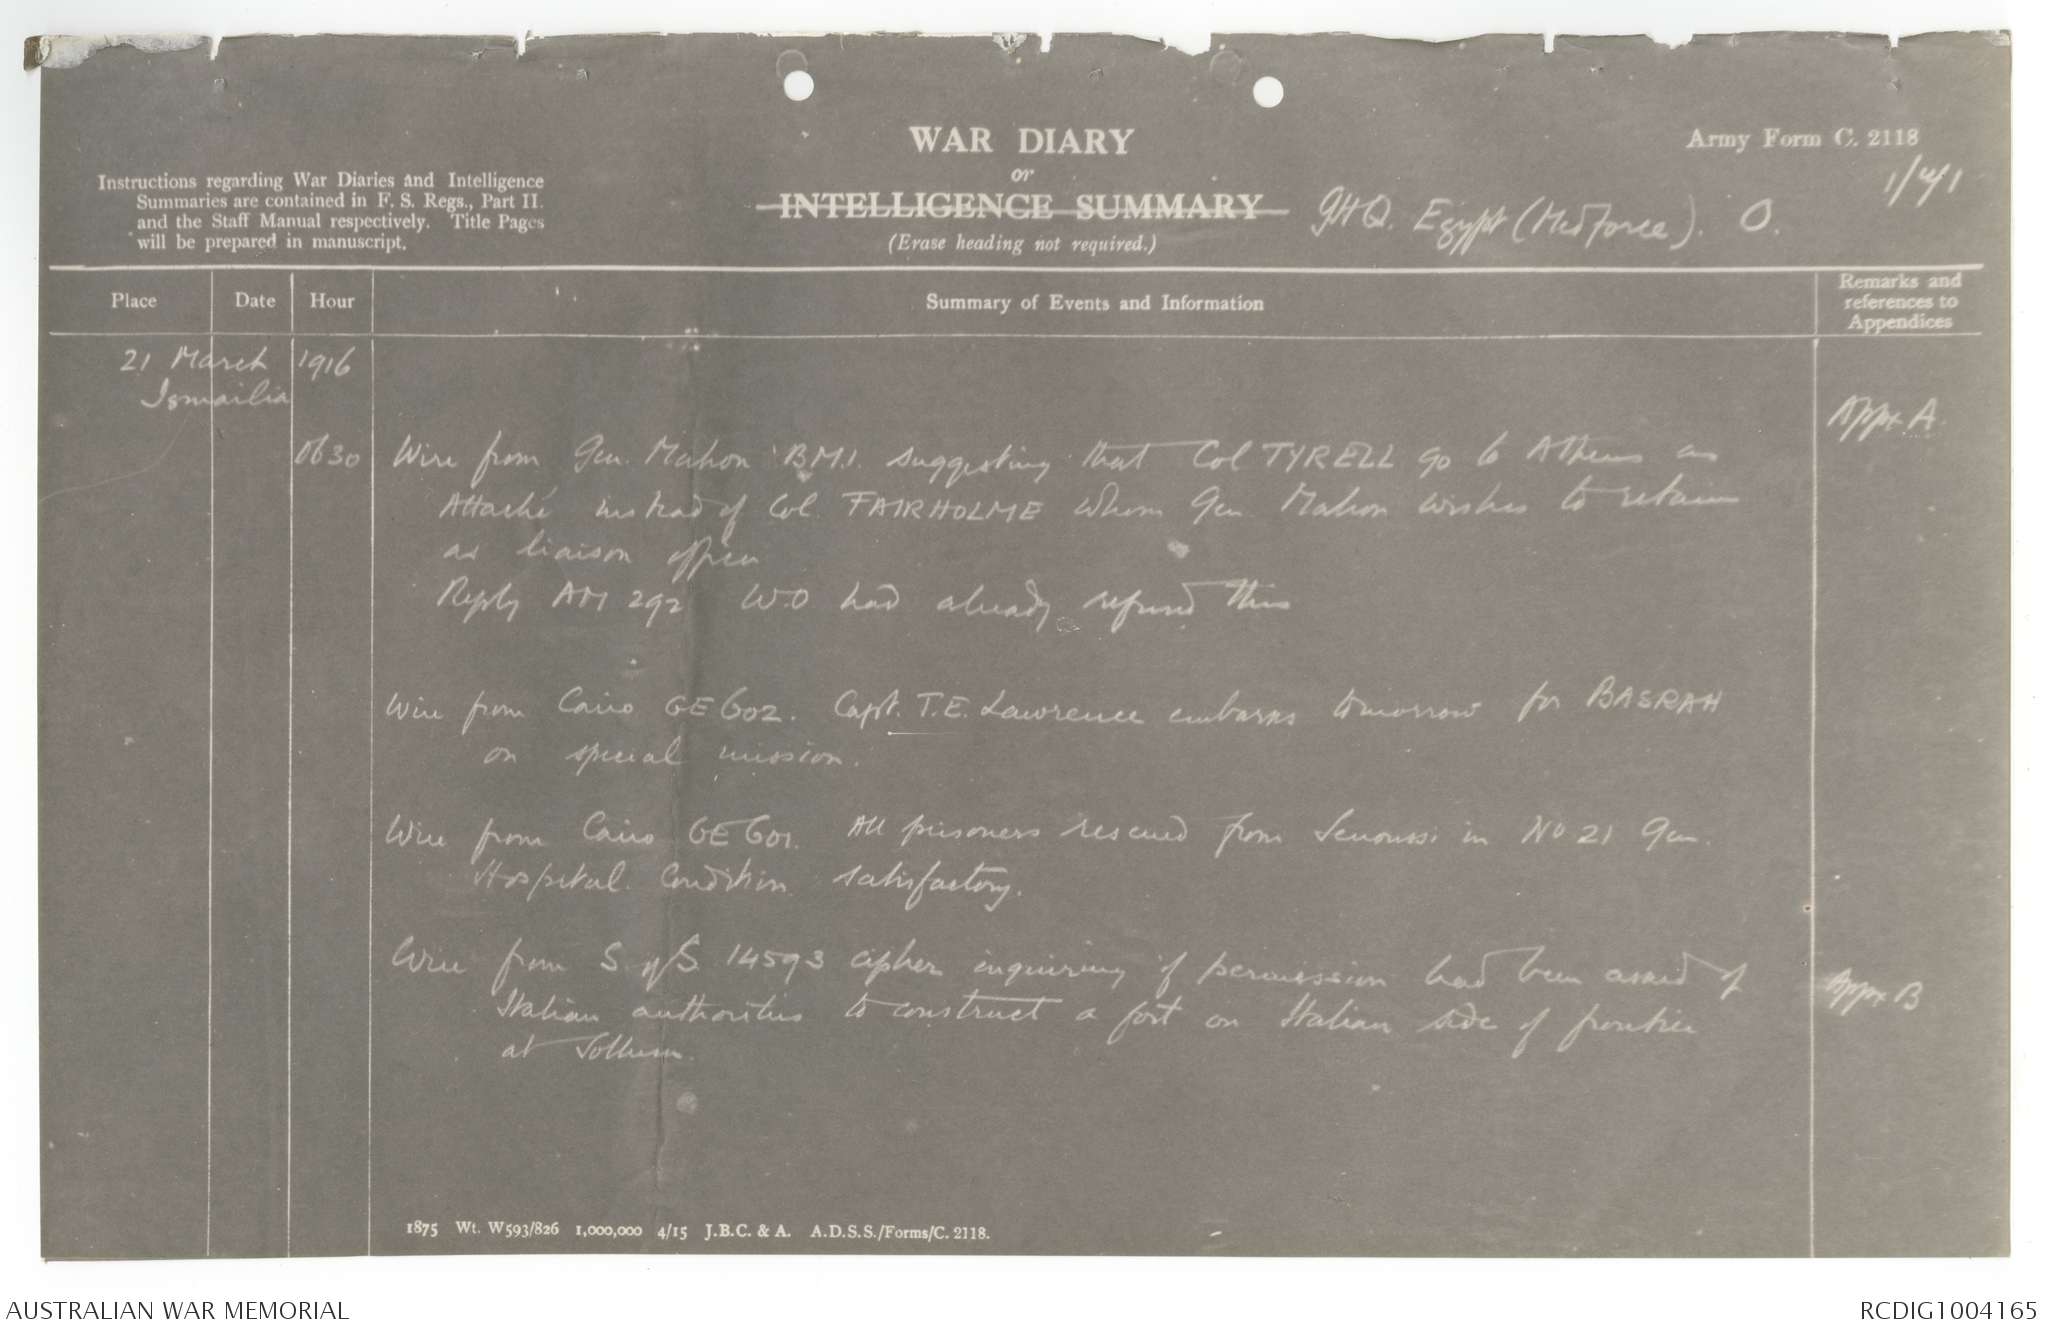 WAR DIARY
or
INTELLIGENCE SUMMARY
(Erase heading not required.)
Army Form C. 2118
Instructions regarding War Diaries and Intelligence
Summaries are contained in F. S. Regs., Part II.
and the Staff Manual respectively. Title Pages
will be prepared in manuscript.
GHQ. Egypt (Medforce). O.
Place
Date
Hour
Summary of Events and Information
Remarks and
references to
Appendices
21 March 1916
Ismailia
0630 Wire from Gen. Mahon BM1. suggesting that Col TYRELL go to Athens as Appx A.
Attaché instead of Col. FAIRHOLME whom Gen Mahon wishes to retain
as liaison officer
Reply AM 292 W.O had already refused this
Wire from Cairo GE602. Capt. T.E. Lawrence embarks tomorrow for BASRAH
on special mission.
Wire from Cairo GE601. All prisoners rescued from Senoussi in No 21 Gen.
Hospital. Condition satisfactory.
Wire from S. of S. 14593 cipher inquiring if permission had been asked of Appx B
Italian authorities to construct a fort on Italian side of frontier
at Sollum.
1875 Wt. W593/826 1,000,000 4/15 J.B.C. & A. A.D.S.S./Forms/C. 2118.
AUSTRALIAN WAR MEMORIAL
RCDIG1004165